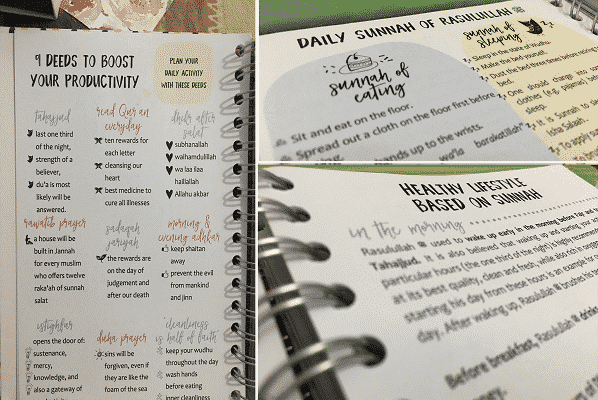 9 DEEDS TO BOOST
YOUR PRODUCTIVITY
PLAN YOUR
DAILY ACTIVITY
WITH THESE DEEDS
tahajjud
last one third
of the night,
strength of a
believer,
du'a is most
likely will be
answered.
read Qur'an
everyday
ten rewards for
each letter
cleansing our
heart
best medicine to
cure all illnesses
dhikr after
salat
subhanallah
walhamdulillah
wa laa ilaa
hailallah
Allahu akbar
rawatib prayer
a house will be
built in Jannah
for every muslim
who offers twelve
raka'ah of sunnah
salat
sadaqah
jariyah
the rewards are
on the day of
judgement and
after our death
morning &
evening adhkar
keep shaitan
away
prevent the evil
from mankind
and jinn
istighfar
opens the door of:
sustenance,
mercy,
knowledge, and
also a gateway of
duha prayer
sins will be
forgiven, even if
they are like the
foam of the sea
"cleanliness
is half of faith"
keep your wudhu
throughout the day
wash hands
before eating
inner cleanliness
DAILY SUNNAH OF RASULULLAH ﷺ
sunnah of
eating
Sit and eat on the floor.
Spread out a cloth on the floor first before
hands up to the wrists.
barakatillah
sunnah of
sleeping
Sleep in the state of Wudhu.
Make the bed yourself.
Dust the bed three times before
One should change into
clothes (e.g.
sleep.
It is Sunnah to
Isha Salaah.
HEALTHY LIFESTYLE
BASED ON SUNNAH
in the morning
Rasulullah ﷺ used to wake up early in the morning before Fajr and
Tahajjud. It is also believed that waking up and starting your
particular hours (the one third of the night) is highly
at its best quality, clean and fresh, while also rich in
starting his day from these hours is an example for
day. After waking up, Rasulullah ﷺ brushed his
Before breakfast, Rasulullah ﷺ drinks